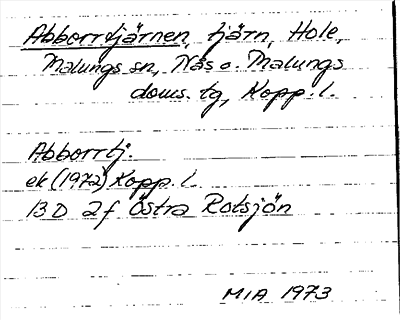 Abborrtjärnen, tjärn, Hole,
Malungs sn, Nås o. Malungs
doms. tg, Kopp. l.
Abborrtj.
ek (1972) Kopp. l.
13 D 2f Östra Rotsjön
MIA 1973